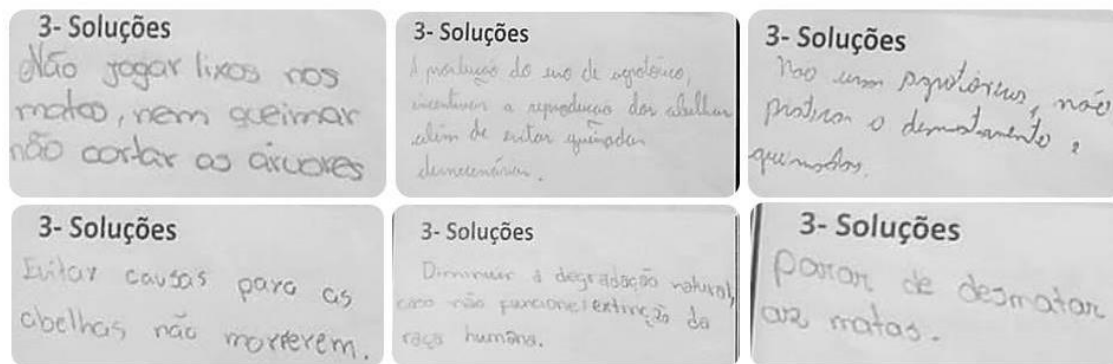 3- Soluções
Não jogar lixos nos
matos, nem queimar
não cortar as árvores
3- Soluções
A do uso de agrotóxico,
incentivar a reprodução das abelhas
além de evitar queimadas
desnecessárias.
3- Soluções
Não usar agrotóxicos, não
praticar o desmatamento e
queimadas.
3- Soluções
Evitar causas para as
abelhas não morrerem.
3- Soluções
Diminuir a degradação natural,
caso não funcione extinção da
raça humana.
3- Soluções
parar de desmatar
as matas.